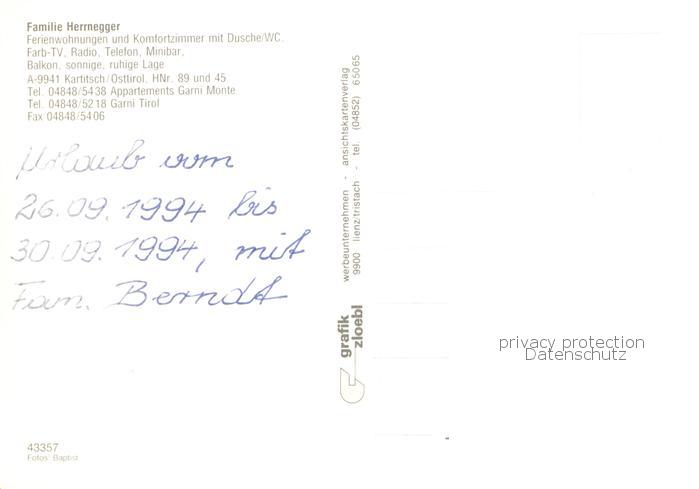 Familie Herrnegger
Ferienwohnungen und Komfortzimmer mit Dusche/WC.
Farb-TV, Radio, Telefon, Minibar,
Balkon, sonnige, ruhige Lage
A-9941 Kartitsch/Osttirol, HNr. 89 und 45
Tel. 04848/5438 Appartements Garni Monte
Tel. 04848/5218 Garni Tirol
Fax 04848/5406
Urlaub vom
26.09.1994 bis
30.09.1994, mit
Fam. Berndt
43357
Fotos: Baptist
werbeunternehmen - ansichtskartenverlag
9900 lienz/tristach - tel. (04852) 65065
grafik
zloebl
privacy protection
Datenschutz